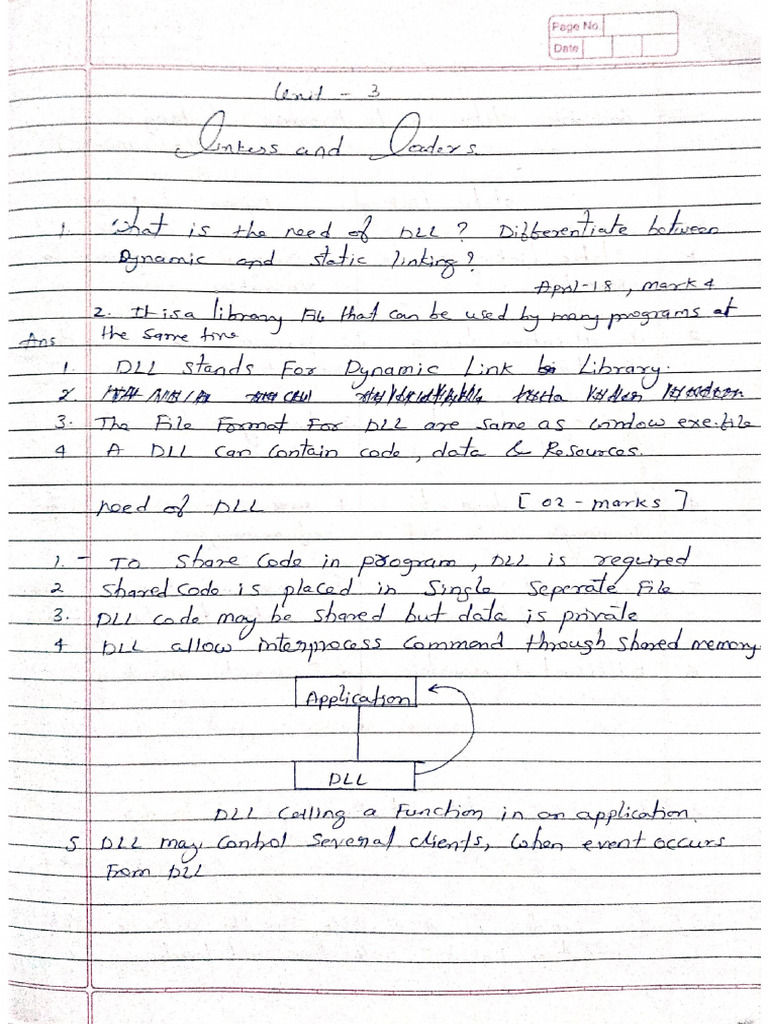 Page No.
Date
Unit - 3
Linkers and Loaders.
1. What is the need of DLL? Differentiate between
Dynamic and static linking?
April-18, mark 4
2. It is a library File that can be used by many programs at
Ans the same time
1. DLL stands For Dynamic Link Library.
2
3. The File Format For DLL are same as window exe.file
4 A DLL can contain code, data & Resources.
need of DLL [02-marks]
1. - To share code in program, DLL is required
2 Shared code is placed in Single Seperate File
3. DLL code may be shared but data is private
4 DLL allow interprocess Command through shared memory
Application
DLL
DLL Calling a Function in an application.
5 DLL may control several clients, when event occurs
From DLL